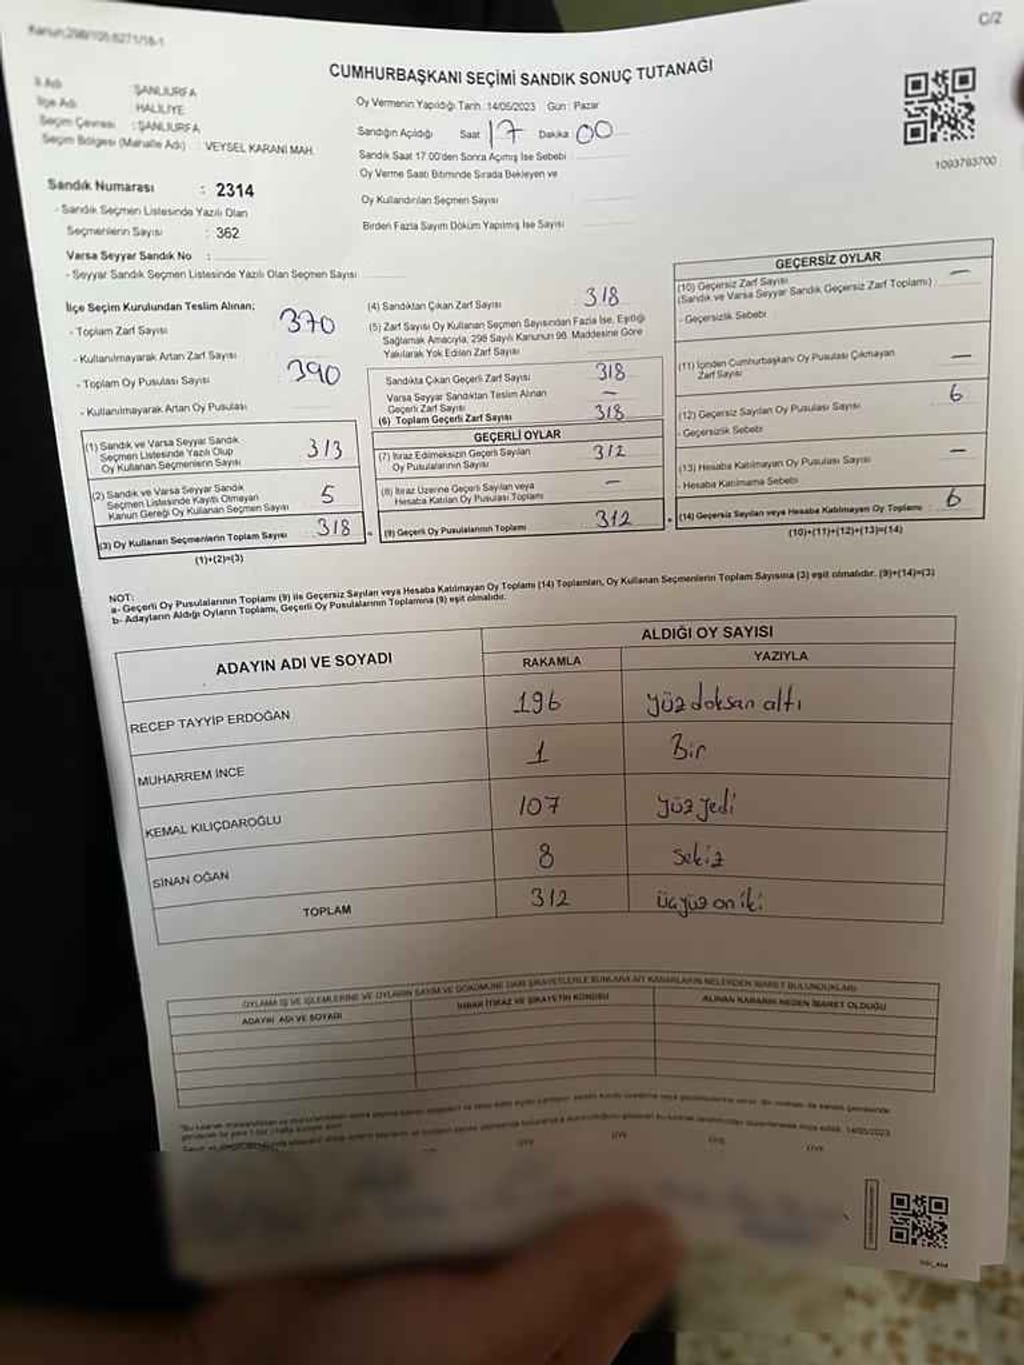 C/2
CUMHURBAŞKANI SEÇİMİ SANDIK SONUÇ TUTANAĞI
İl Adı : ŞANLIURFA
İlçe Adı : HALİLİYE
Seçim Çevresi : ŞANLIURFA
Seçim Bölgesi (Mahalle Adı) : VEYSEL KARANİ MAH.
Oy Vermenin Yapıldığı Tarih : 14/05/2023 Gün : Pazar
Sandığın Açıldığı Saat 17 Dakika 00
Sandık Saat 17.00'den Sonra Açımış İse Sebebi
Oy Verme Saati Bitiminde Sırada Bekleyen ve
Oy Kullandırılan Seçmen Sayısı
Birden Fazla Sayım Döküm Yapılmış İse Sayısı
1093793700
Sandık Numarası : 2314
- Sandık Seçmen Listesinde Yazılı Olan
Seçmenlerin Sayısı : 362
Varsa Seyyar Sandık No :
- Seyyar Sandık Seçmen Listesinde Yazılı Olan Seçmen Sayısı
İlçe Seçim Kurulundan Teslim Alınan;
- Toplam Zarf Sayısı 370
- Kullanılmayarak Artan Zarf Sayısı
- Toplam Oy Pusulası Sayısı 390
- Kullanılmayarak Artan Oy Pusulası
(1) Sandık ve Varsa Seyyar Sandık
Seçmen Listesinde Yazılı Olup
Oy Kullanan Seçmenlerin Sayısı 313
(2) Sandık ve Varsa Seyyar Sandık
Seçmen Listesinde Kayıtlı Olmayan
Kanun Gereği Oy Kullanan Seçmen Sayısı 5
(3) Oy Kullanan Seçmenlerin Toplam Sayısı 318
(1)+(2)=(3)
(4) Sandıktan Çıkan Zarf Sayısı 318
(5) Zarf Sayısı Oy Kullanan Seçmen Sayısından Fazla İse, Eşitliği
Sağlamak Amacıyla, 298 Sayılı Kanunun 98. Maddesine Göre
Yakılarak Yok Edilen Zarf Sayısı
Sandıkta Çıkan Geçerli Zarf Sayısı 318
Varsa Seyyar Sandıktan Teslim Alınan
Geçerli Zarf Sayısı —
(6) Toplam Geçerli Zarf Sayısı 318
GEÇERLİ OYLAR
(7) İtiraz Edilmeksizin Geçerli Sayılan
Oy Pusulalarının Sayısı 312
(8) İtiraz Üzerine Geçerli Sayılan veya
Hesaba Katılan Oy Pusulası Toplamı —
(9) Geçerli Oy Pusulalarının Toplamı 312
GEÇERSİZ OYLAR
(10) Geçersiz Zarf Sayısı
(Sandık ve Varsa Seyyar Sandık Geçersiz Zarf Toplamı) —
- Geçersizlik Sebebi
(11) İçinden Cumhurbaşkanı Oy Pusulası Çıkmayan
Zarf Sayısı —
(12) Geçersiz Sayılan Oy Pusulası Sayısı 6
- Geçersizlik Sebebi
(13) Hesaba Katılmayan Oy Pusulası Sayısı —
- Hesaba Katılmama Sebebi
(14) Geçersiz Sayılan veya Hesaba Katılmayan Oy Toplamı 6
(10)+(11)+(12)+(13)=(14)
NOT:
a- Geçerli Oy Pusulalarının Toplamı (9) ile Geçersiz Sayılan veya Hesaba Katılmayan Oy Toplamı (14) Toplamları, Oy Kullanan Seçmenlerin Toplam Sayısına (3) eşit olmalıdır. (9)+(14)=(3)
b- Adayların Aldığı Oyların Toplamı, Geçerli Oy Pusulalarının Toplamına (9) eşit olmalıdır.
ADAYIN ADI VE SOYADI ALDIĞI OY SAYISI
RAKAMLA YAZIYLA
RECEP TAYYİP ERDOĞAN 196 yüz doksan altı
MUHARREM İNCE 1 Bir
KEMAL KILIÇDAROĞLU 107 yüz yedi
SİNAN OĞAN 8 sekiz
TOPLAM 312 üçyüz on iki
OYLAMA İŞ VE İŞLEMLERİNE VE OYLARIN SAYIM VE DÖKÜMÜNE DAİR ŞİKAYETLERLE BUNLARA AİT KARARLARIN NELERDEN İBARET BULUNDUKLARI
ADAYIN ADI VE SOYADI İHBAR İTİRAZ VE ŞİKAYETİN KONUSU ALINAN KARARIN NEDEN İBARET OLDUĞU
ÜYE ÜYE ÜYE ÜYE